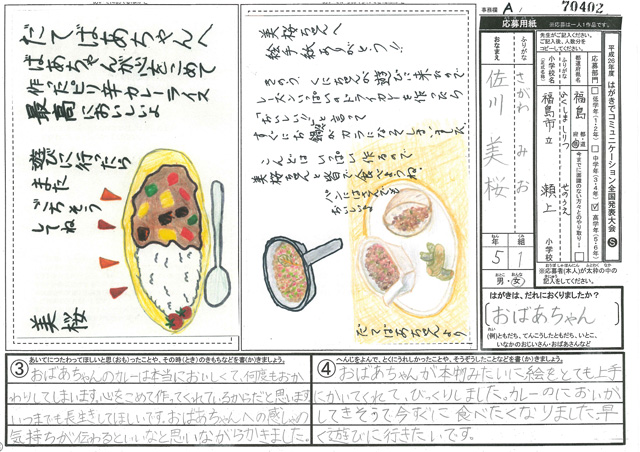 だてばあちゃんへ
ばあちゃんが心をこめて
作ったピリ辛カレーライス
最高においしいよ
遊びに行たら
また
ごちそう
してね
美桜
美桜ちゃんへ
絵手紙ありがとう!
すぐにお鍋がカラになてしまいました
こんどはいっぱい作るので
美桜ちゃんと皆で食べようね!
パンにはさんでも
おいしいよ
だてばあちゃんより
事務欄 A 70402
応募用紙
※応募は一人1作品です。
平成26年度 はがきでコミュニケーション全国発表大会 S
応募部門
低学年(1・2年)
中学年(3・4年)
高学年(5・6年)
都道府県名
福島
小学校名
ふくしましりつ
福島市立
せのうえ
瀬上
小学校
ふりがな
さがわ みお
おなまえ
佐川 美桜
年 5
組 1
男・女
はがきは、だれにおくりましたか?
おばあちゃん
(例)ともだち、てんこうしたともだち、いとこ、
いなかのおじいさん・おばあさんなど
③ あいてにつたわってほしいと思(おも)ったことや、その時(とき)のきもちなどを書(か)きましょう。
おばあちゃんのカレーは本当においしくて、何度もおか
わりしてしまいます。心をこめて作ってくれているからだと思います。
いつまでも長生きしてほしいです。おばあちゃんへの感しゃの
気持ちが伝わるといいなと思いながらかきました。
④ へんじをよんで、とくにうれしかったことや、そうぞうしたことなどを書(か)きましょう。
おばあちゃんが本物みたいに絵をとても上手
にかいてくれて、びっくりしました。カレーのにおいが
してきそうで今すぐに食べたくなりました。早
く遊びに行きたいです。